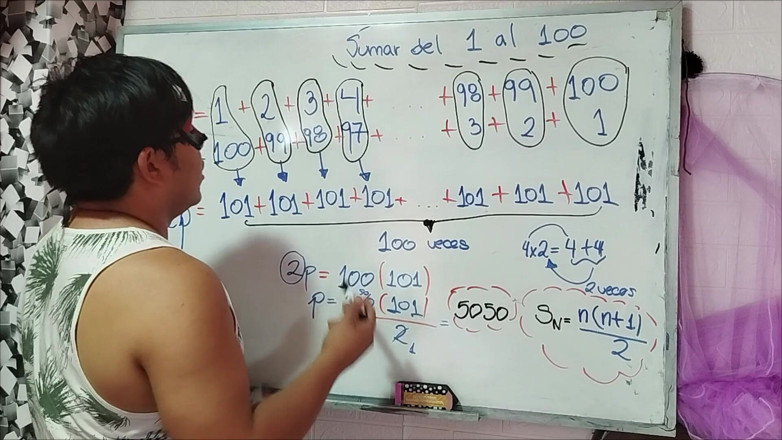 Sumar del 1 al 100
= 1 + 2 + 3 + 4 + . . . . + 98 + 99 + 100
100 + 99 + 98 + 97 + . . . . + 3 + 2 + 1
p = 101 + 101 + 101 + 101 + . . . + 101 + 101 + 101
100 veces
4x2 = 4 + 4
2 veces
2p = 100 (101)
p = (101) / 2 1 = 5050
SN = n(n+1) / 2